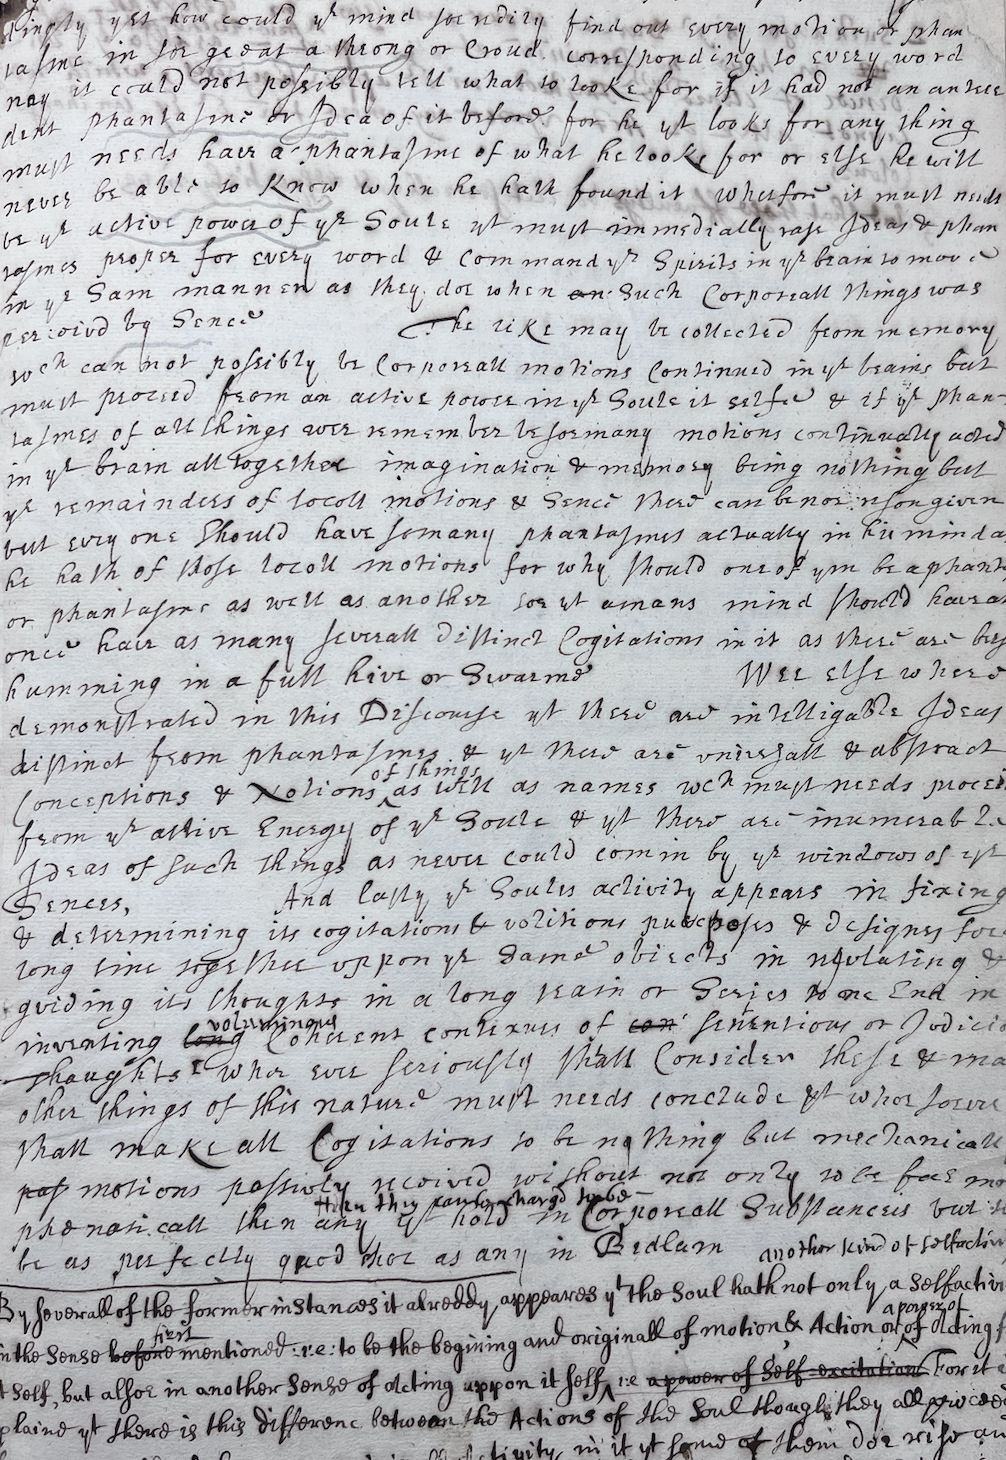 kingly yet how could yͤ mind soe redily find out every motion or phan
tasme in soe great a throng or Croud corresponding to every word
nay it could not possibly tell what to looke for if it had not an antece
dent phantasme or Idea of it before. for he yt looks for any thing
must needs have a phantasme of what he looks for or else he will
never be able to know when he hath found it wherfore it must needs
be yͤ active power of yͤ Soule yt must immedially rase Ideas & phan
tasmes proper for every word & command yͤ Spirits in yͤ brain to move
in yͤ Sam manner as they doe when an such Corporeall things was
perceivd by Sence The like may be collected from memory
wch can not possibly be Corporeall motions Continued in yͤ brains but
must proceed from an active power in yͤ Soule it selfe & if yͤ phan-
tasmes of all things wer remember be soe many motions continually acted
in yͤ brain all together imagination & memory being nothing but
yͤ remainders of locall motions & Sence there can be noe reson given
but every one Should have somany phantasmes actually in his mind as
he hath of those locall motions for why should one of ym be a phant
or phantasme as well as another soe yt amans mind should have at
once have as many severall distinct Cogitations in it as there are bees
humming in a full hive or Swarme Wee else where
demonstrated in this Discourse yt there are intelligable Ideas
distinct from phantasmes & yt there are universall & abstract
Conceptions & Notions of things as well as names wch must needs proceed
from yͤ active Energy of yͤ Soule & yt there are inumerable
Ideas of such things as never could com in by yͤ windows of yͤ
Sences, And lastly yͤ Soules activity appears in fixing
& determining its cogitations & volitions purposes & designes for
long time together uppon yͤ same objects in regulating &
guiding its thoughts in a long train or Series to one End in
inventing long voluminous Coherent contexures of con sententious or Judicio
Thoughts whoe ever seriously shall Consider these & ma
other things of this nature must needs conclude yt whoe soever
shall make all Cogitations to be nothing but mechanicall
pas motions passivly received without not only to be far mo
phanaticall then any yt hold in Corporeall Substances but to
be as perfectly mad as any in Bedlam another kind of selfactiv
By severall of the former instances it alreddy appeares yt the Soul hath not only a selfactivi
in the sense before first mentioned :i:e: to be the begining and originall of motion & Action or a power of acting f
t self, but alsoe in another sense of acting uppon it self i:e a power of self-excitation For it i
plaine yt there is this difference betwean the Actions of the Soul though they all proceed
tivity in it yt some of them doe rise an